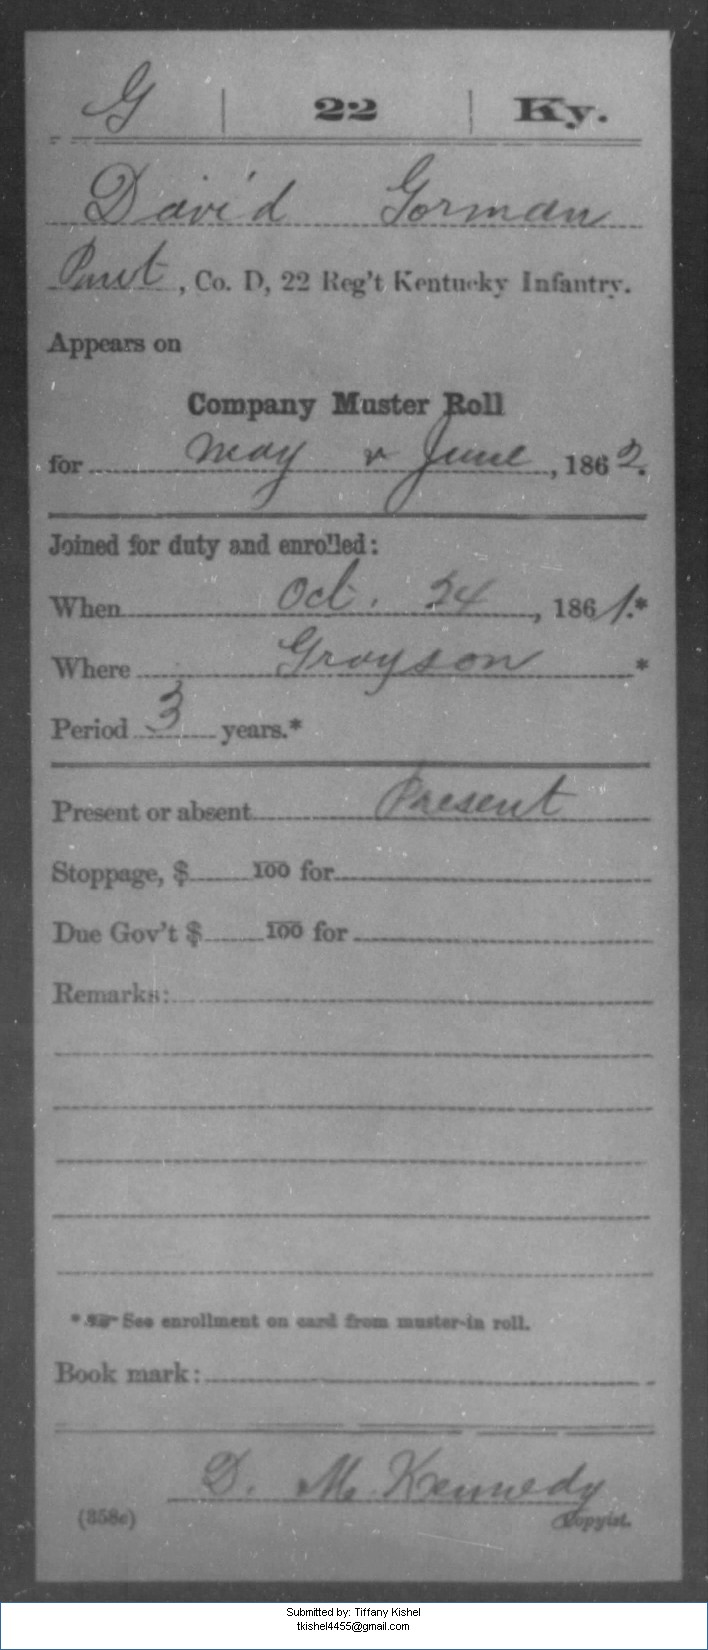 G | 22 | Ky.
David Gorman
Pavt, Co. D, 22 Reg't Kentucky Infantry.
Appears on
Company Muster Roll
for May & June, 1862.
Joined for duty and enrolled:
When Oct. 24, 1861.*
Where Grayson *
Period 3 years.*
Present or absent Present
Stoppage, $ 100 for
Due Gov't $ 100 for
Remarks:
* See enrollment on card from muster-in roll.
Book mark:
D. M. Kennedy
(358c) Copyist.
Submitted by: Tiffany Kishel
tkishel4455@gmail.com